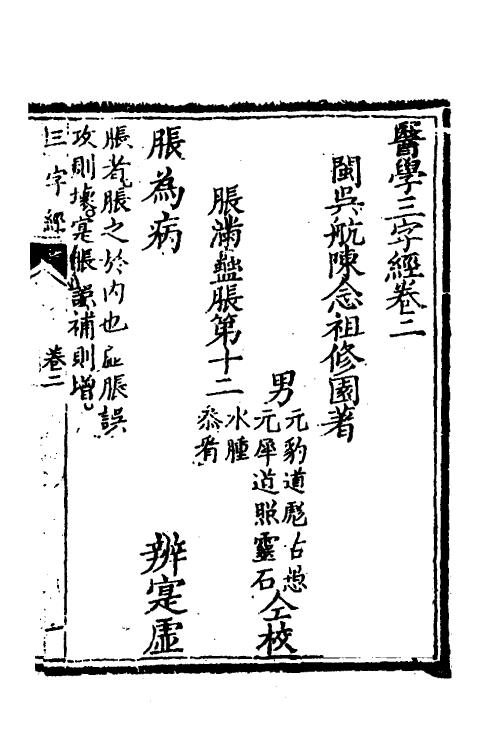 醫學三字經卷二
閩吳航陳念祖修園著
男
元豹道彪古愚
元犀道照靈石
仝校
脹滿蠱脹第十二
水腫
叅看
脹為病
辨寔虛
脹者脹之於內也虛脹誤
攻則壞寔脹誤補則增
三字經
卷二
一